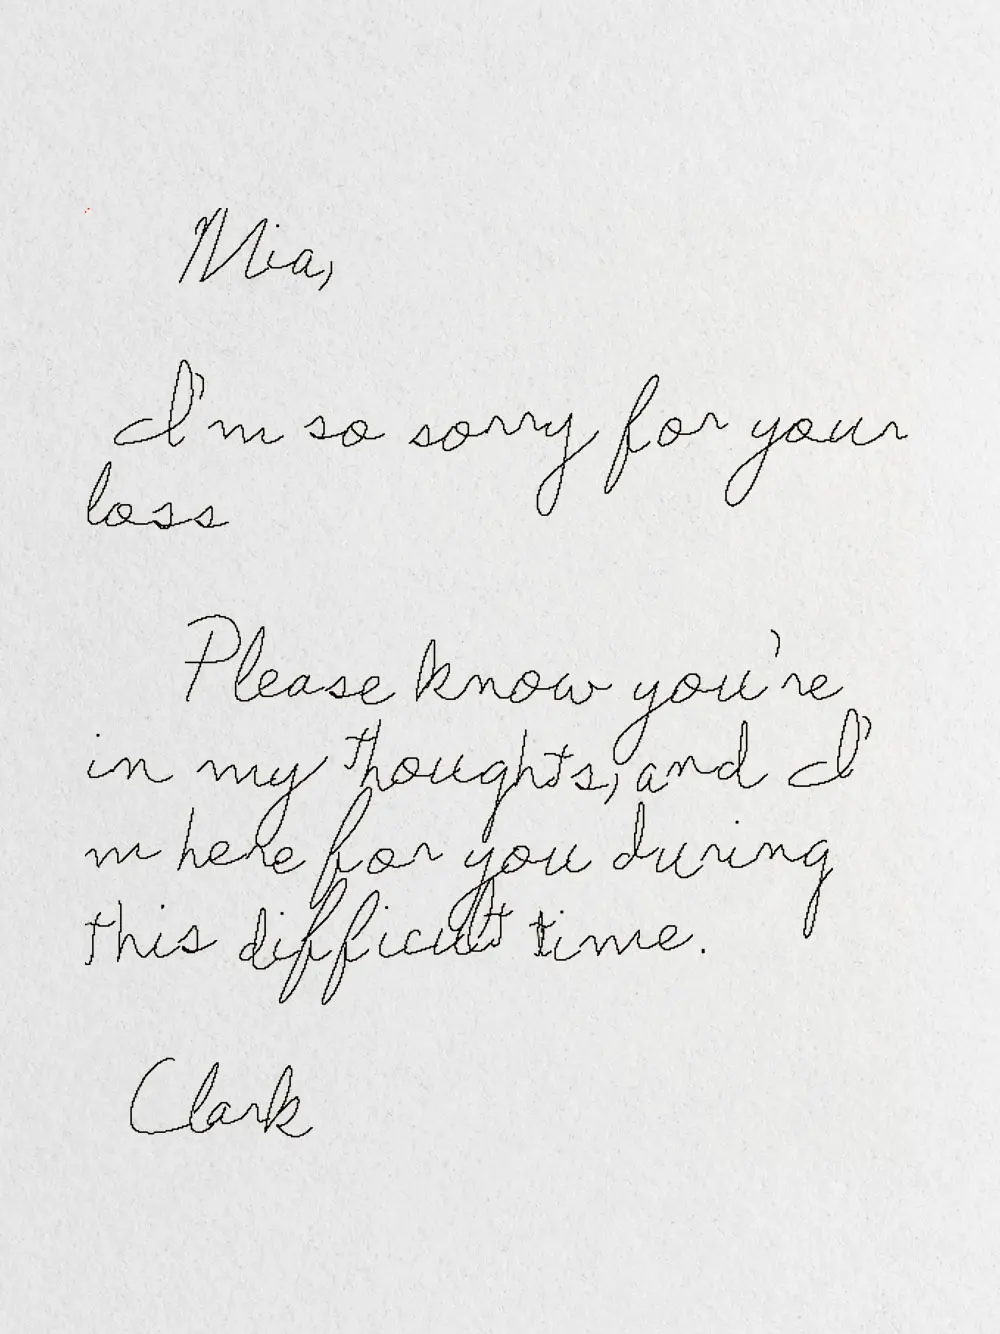 Mia,
I'm so sorry for your
loss
Please know you're
in my thoughts, and I'
m here for you during
this difficult time.
Clark